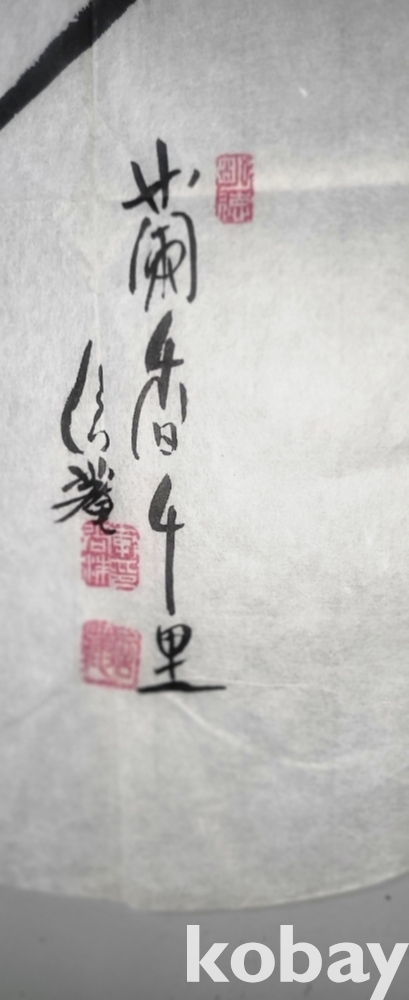 蘭香千里
信菴
kobay